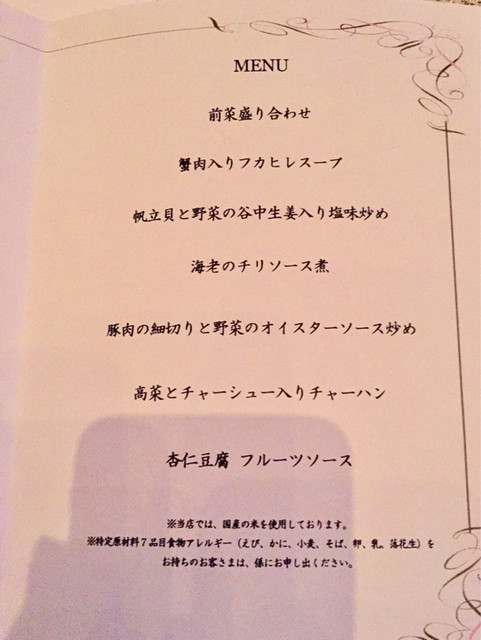 MENU
前菜盛り合わせ
蟹肉入りフカヒレスープ
帆立貝と野菜の谷中生姜入り塩味炒め
海老のチリソース煮
豚肉の細切りと野菜のオイスターソース炒め
高菜とチャーシュー入りチャーハン
杏仁豆腐 フルーツソース
※当店では、国産の米を使用しております。
※特定原材料７品目食物アレルギー（えび、かに、小麦、そば、卵、乳、落花生）を
お持ちのお客さまは、係にお申し出ください。